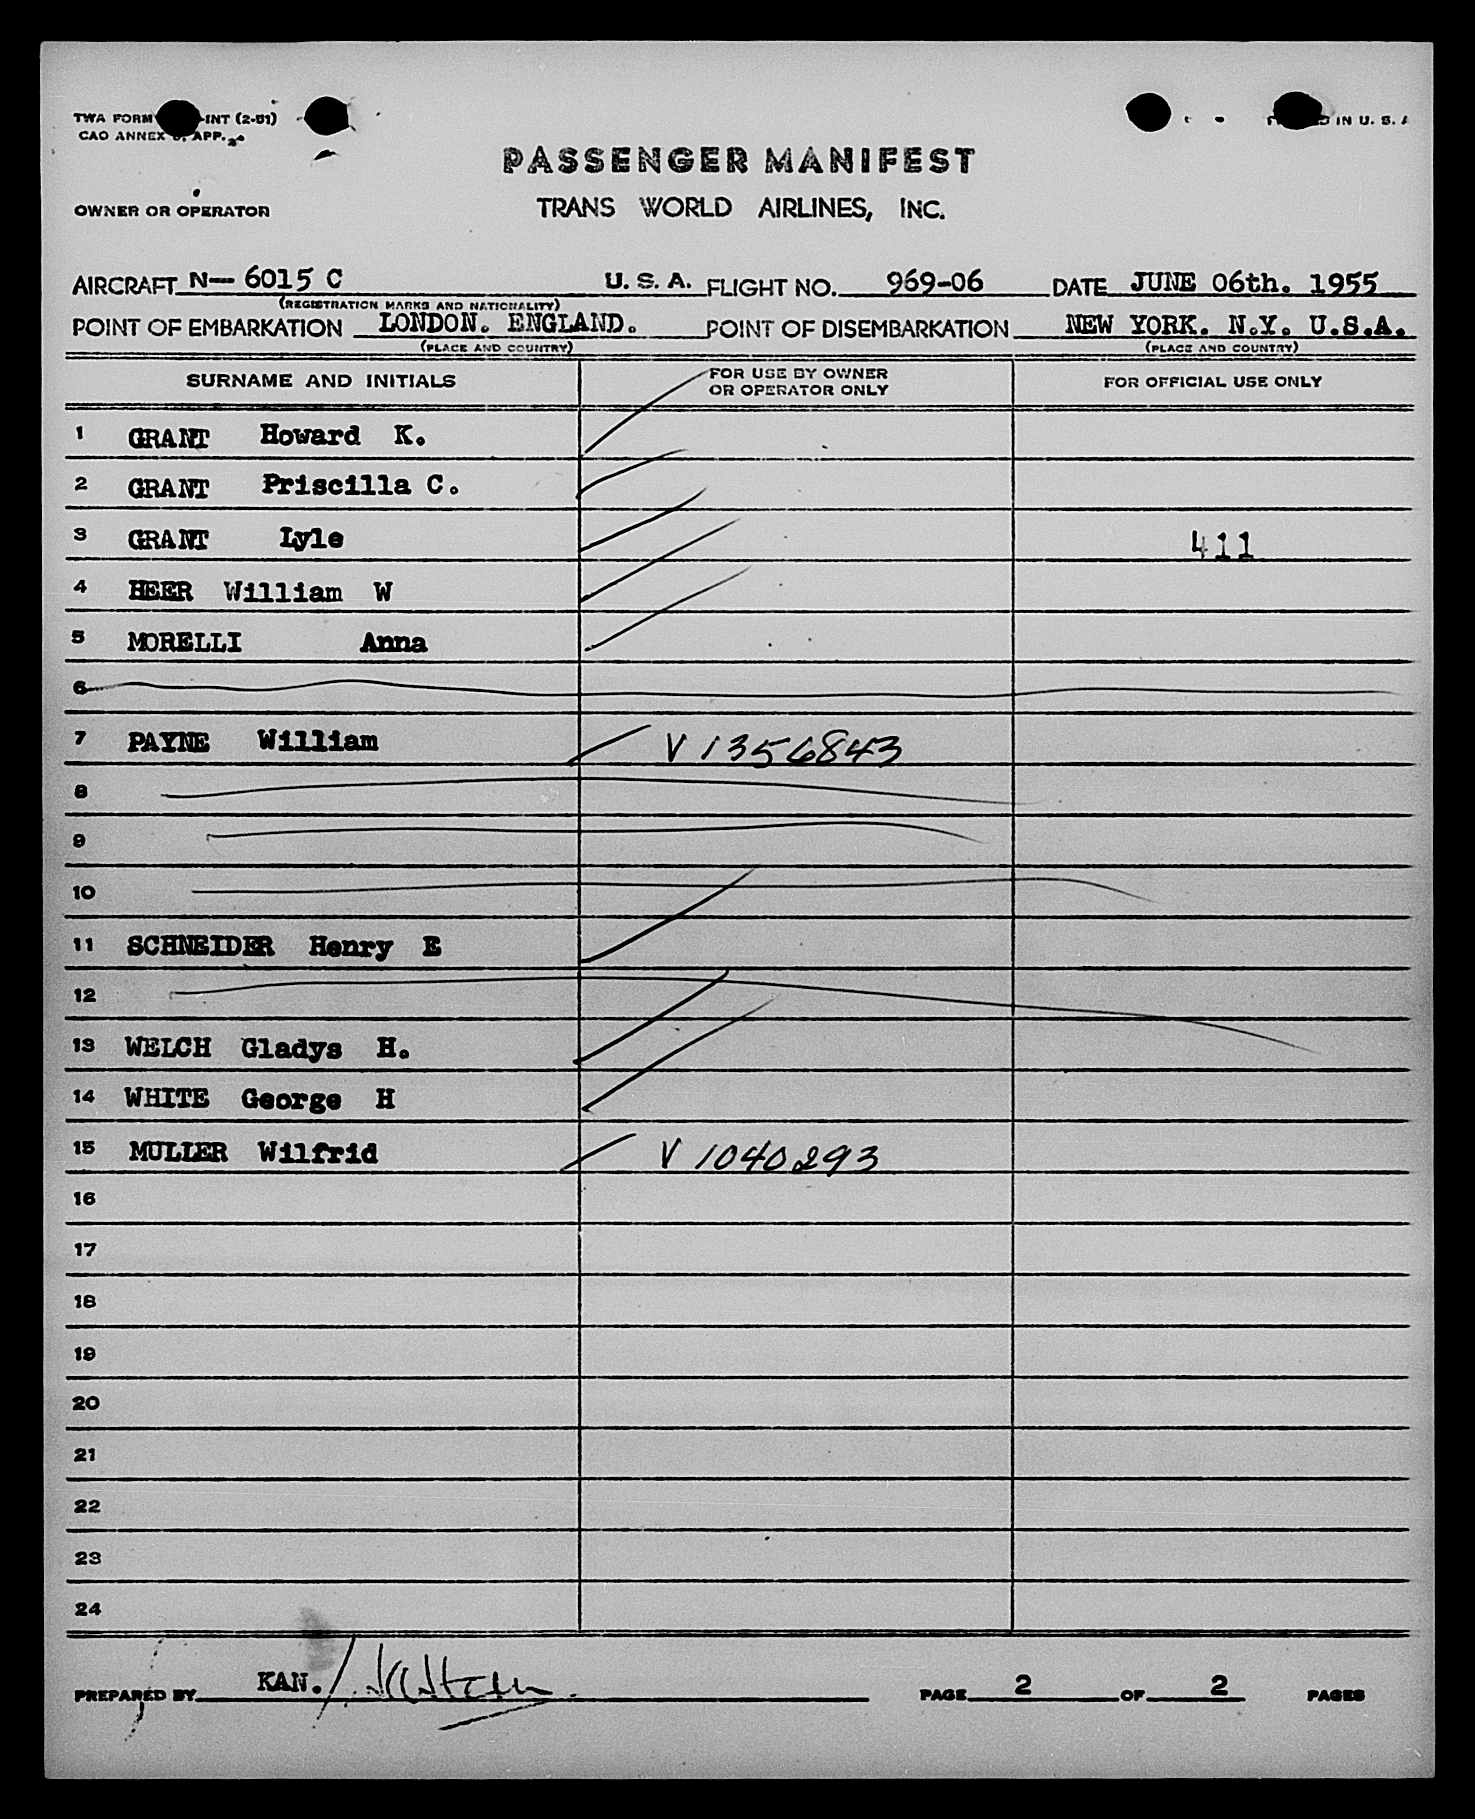 TWA FORM -INT (2-51)
CAO ANNEX 9, APP.
IN U. S. A
PASSENGER MANIFEST
OWNER OR OPERATOR TRANS WORLD AIRLINES, INC.
AIRCRAFT N- 6015 C U. S. A. FLIGHT NO. 969-06 DATE JUNE 06th. 1955
(REGISTRATION MARKS AND NATIONALITY)
POINT OF EMBARKATION LONDON. ENGLAND. POINT OF DISEMBARKATION NEW YORK. N.Y. U.S.A.
(PLACE AND COUNTRY) (PLACE AND COUNTRY)
SURNAME AND INITIALS FOR USE BY OWNER OR OPERATOR ONLY FOR OFFICIAL USE ONLY
1 GRANT Howard K.
2 GRANT Priscilla C.
3 GRANT Lyle 411
4 HEER William W
5 MORELLI Anna
6
7 PAYNE William V 1356843
8
9
10
11 SCHNEIDER Henry E
12
13 WELCH Gladys H.
14 WHITE George H
15 MULLER Wilfrid V 1040293
16
17
18
19
20
21
22
23
24
PREPARED BY KAN. PAGE 2 OF 2 PAGES